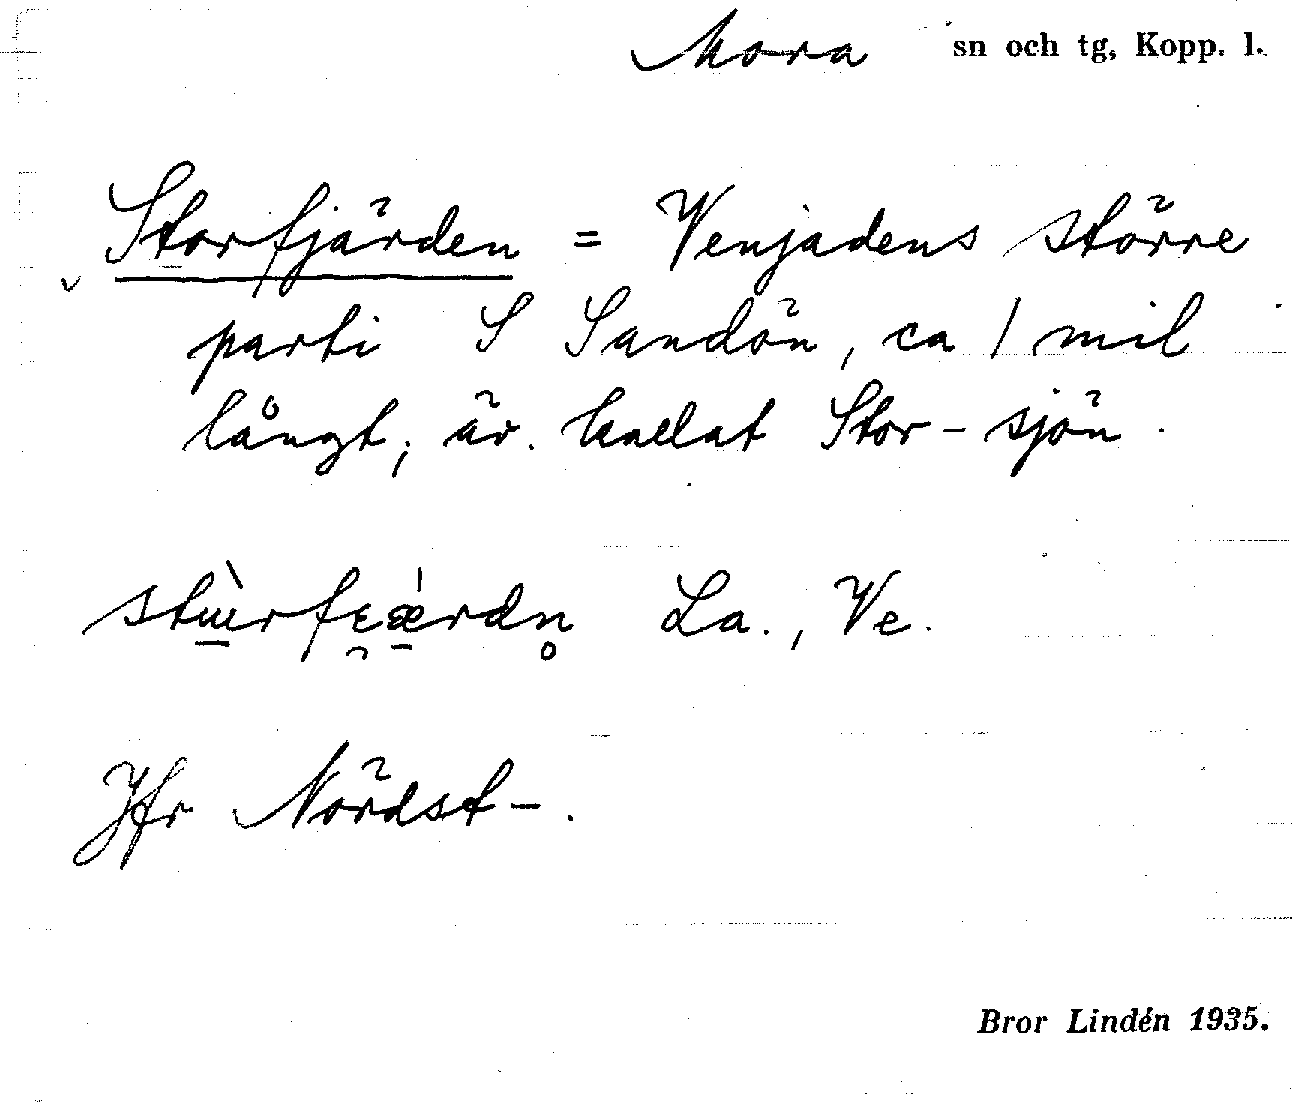 Mora sn och tg, Kopp. l.
Storfjärden = Venjadens större
parti S Sandön, ca 1 mil
långt; äv. kallat Stor-sjön.
La., Ve.
Jfr Nördst-.
Bror Lindén 1935.